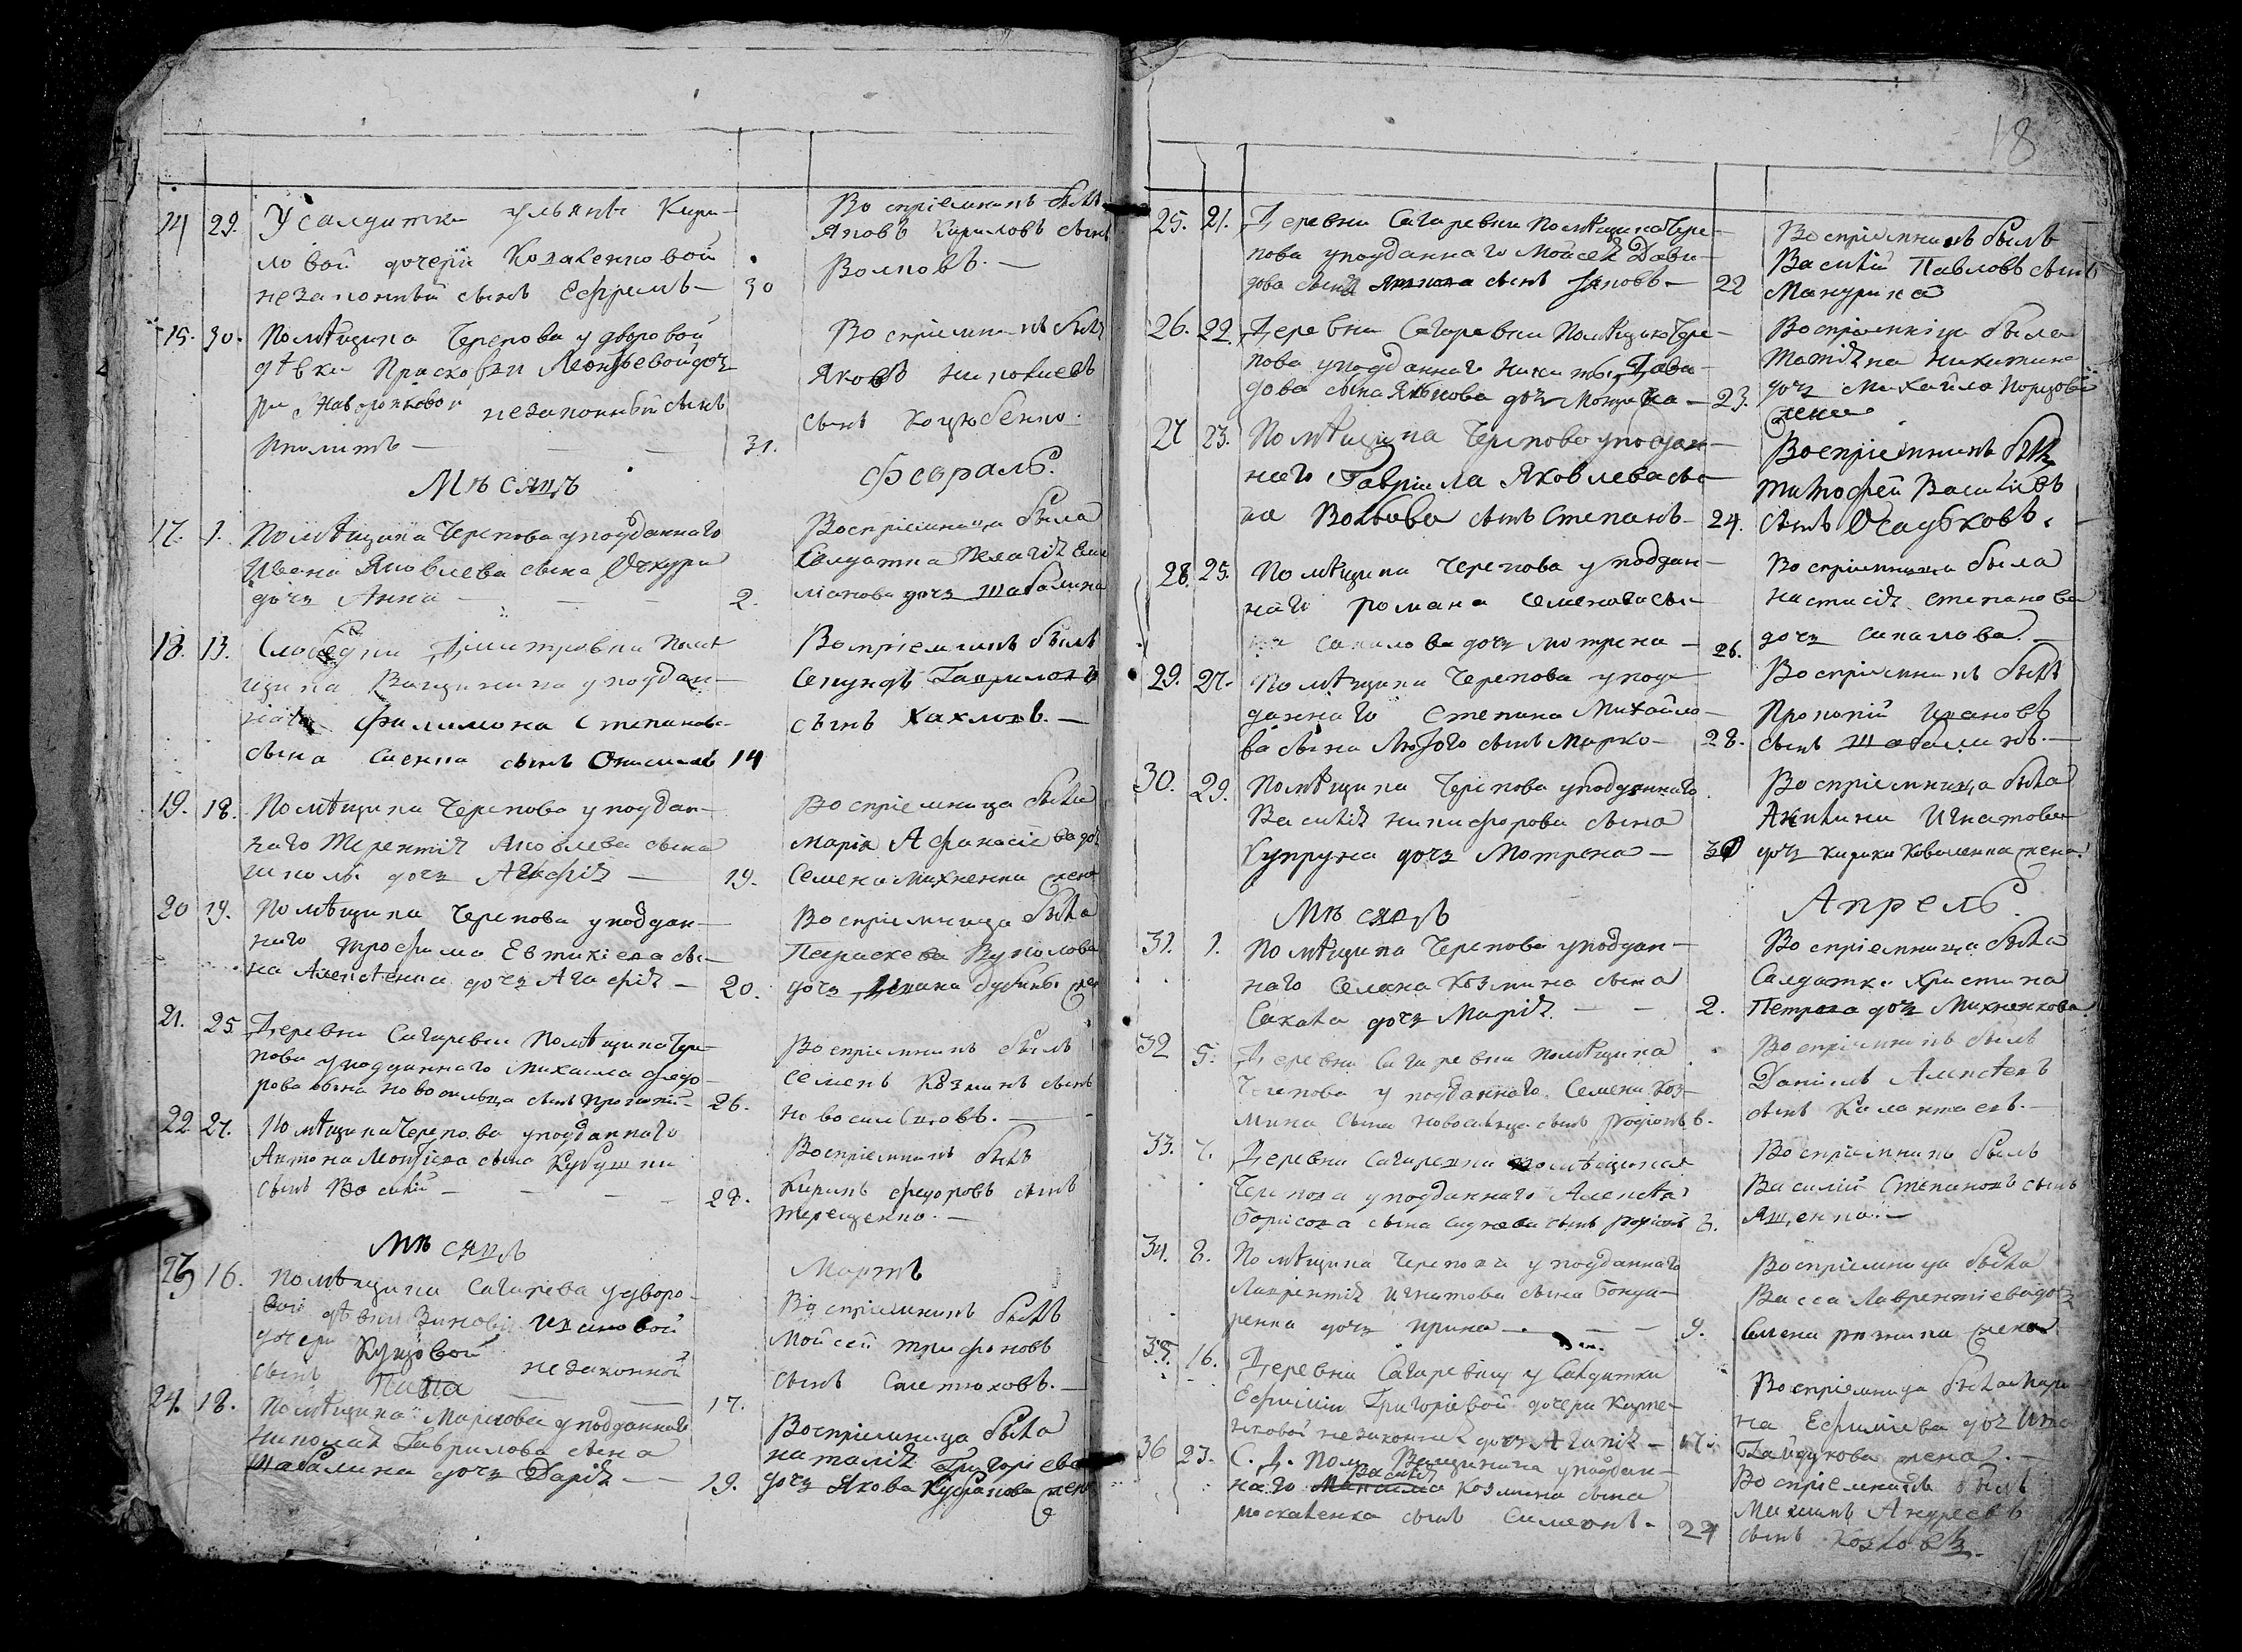 18
14 29. У салдатки ульяны Кири-
ловой дочери Коваленковой
незаконный сынъ Ефремъ — 30
Воспріемникъ былъ
Яковъ Кириловъ сынъ
Волковъ. —
15. 30. Помѣщика Черепова у дворовой
дѣвки Прасковьи Леонтьевой доч
ри незаконный сынъ
Иполитъ — 31.
Воспріемникъ былъ
Яковъ
сынъ Коцюбенко.
Мѣсяцъ Февраль.
17. 1. Помѣщика Черепова у подданнаго
Ивана Яковлева сына Очкура
дочь Анна — 2.
Воспріемница была
Салдатка Пелагія Еме
ліанова дочь Шабалина
18. 13. Слободки Дмитровки помѣ
щика Ващинина у поддан-
наго Филимона Степанова
сына Саенка сынъ Онисимъ 14
Воспріемникъ былъ
Секундъ Гавриловъ
сынъ Хахловъ. —
19. 18. Помѣщика Черепова у поддан-
наго Терентія Яковлева сына
дочь Агафія — 19.
Воспріемница была
Марія Афанасіева доч
Семена Михненка жена
20 19. Помѣщика Черепова у поддан-
наго Трофима Евтихіева сы-
на Алексѣенка дочь Агафія — 20.
Воспріемница была
Параскева Вуколова
дочь жен
21. 25 Деревни Сагаревки Помѣщика Чере-
пова у подданнаго Михаила Федо-
рова сына Новосильца сынъ Прокопій — 26.
Воспріемникъ былъ
Семенъ Козминъ сынъ
Новосильцовъ. —
22. 27. Помѣщика Черепова у подданнаго
Антона Моисіева сына Кубушки
сынъ Василій — 28.
Воспріемникъ былъ
Кирилъ Федоровъ сынъ
Терещенко. —
Мѣсяцъ Мартъ
23 16. Помѣщика Сагарева у дворо-
вой дѣвки Зиновіи Ивановой
дочери Купцовой незаконной
сынъ 17.
Воспріемникъ былъ
Мойсей Трифоновъ
сынъ Сметюховъ. —
24. 18. Помѣщика Маркова у подданнаго
Николая Гаврилова сына
Шабалина дочь Дарія — 19.
Воспріемница была
Наталія Григоріева
дочь Якова жена
25. 21. Деревни Сагаревки Помѣщика Чере-
пова у подданнаго Мойсея Дави-
дова сына сынъ Яковъ — 22
Воспріемникъ былъ
Василій Павловъ сынъ
Манурина
26. 22. Деревни Сагаревки Помѣщика Чере-
пова у подданнаго Никиты Дави-
дова сына Якькова дочь — 23.
Воспріемница была
Татіяна Никитина
дочь Михайла
жена
27 23. Помѣщика Черепова у поддан-
наго Гавріила Яковлева сы-
на сынъ Степанъ — 24.
Воспріемникъ былъ
Тимофей Василіевъ
сынъ Осадьковъ.
28. 25. Помѣщика Черепова у поддан-
наго Романа Семенова сы-
на Сакалова дочь Мотрена — 26.
Воспріемница была
Настасія Степанова
дочь Сакалова. —
29. 27. Помѣщика Черепова у под-
даннаго Степана Михайло-
ва сына Лютого сынъ Марко — 28.
Воспріемникъ былъ
Прокопій Ивановъ
сынъ Шабалинъ. —
30. 29. Помѣщика Черепова у подданнаго
Василія Никифорова сына
Купруна дочь Мотрена — 30
Воспріемница была
Акилина Игнатова
дочь Кирика Коваленка жена.
Мѣсяцъ Апрель.
31. 1. Помѣщика Черепова у поддан-
наго Семена Козмина сына
Сакала дочь Марія — 2.
Воспріемница была
Салдатка Христина
Петрова дочь Михненкова
32 5. Деревни Сагаревки помѣщика
Черепова у подданнаго Семена Коз-
мина сына Новосильца сынъ Родіонъ 6.
Воспріемникъ былъ
Даніилъ Алексѣевъ
сынъ Калантаевъ. —
33. 7. Деревни Сагаревки помѣщика
Черепова у подданнаго Алексѣя
Борисова сына сынъ Родіонъ 8.
Воспріемникъ былъ
Василій Степановъ сынъ
Ященко. —
34. 8. Помѣщика Черепова у подданнаго
Лаврентія Игнатова сына Бонда-
ренка дочь Ирина — 9.
Воспріемница была
Васса Лаврентіева дочь
Семена жена
35. 16. Деревни Сагаревки у Салдатки
Ефиміи Григоріевой дочери
незаконная дочь Агапія — 17.
Воспріемница была Мари-
на Ефиміева доч
Гайдукова жена. —
36 23. С. Д. Пом. Ващинина у поддан-
наго Василія Козмина сына
Москаленка сынъ Симеонъ. 24
Воспріемникъ былъ
Максимъ Андреевъ
сынъ Козловъ.